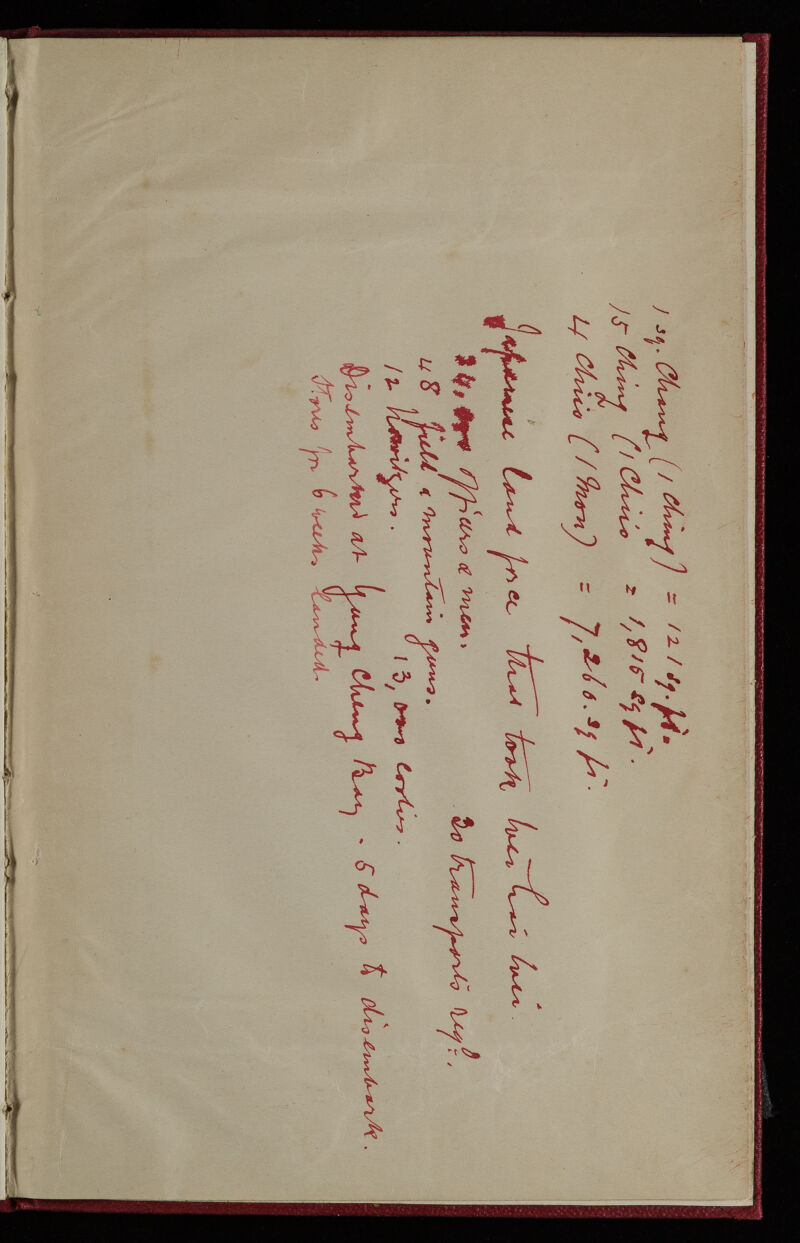 1 sq. Chang (1 ching) = 121 sq. ft.
15 Ching (1 Chio = 1,815 sq ft.
4 Chio (1 Mou) = 7,260. sq ft.
Japanese land force that took Wei hai Wei.
24,000 Officers & men. 30 transports reqd.
48 field & mountain guns.
12 Howitzers. 13,000 coolies.
Disembarked at Yung Cheng Bay. 5 days to disembark.
Stores for 6 weeks landed.